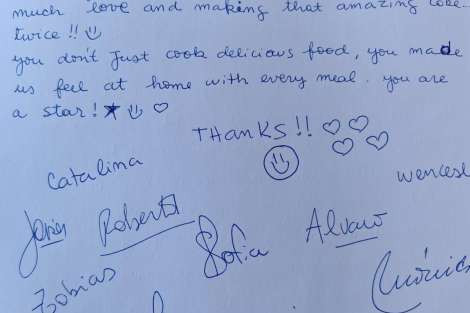 much love and making that amazing cake
twice!! ☺
you don't just cook delicious food, you made
us feel at home with every meal. you are
a star! ★ ☺ ♡
THANKS!! ♡ ♡ ♡ ♡
☺
Catalina
wencesl
Javier Roberto Sofia Alvaro
Tobias Mónica